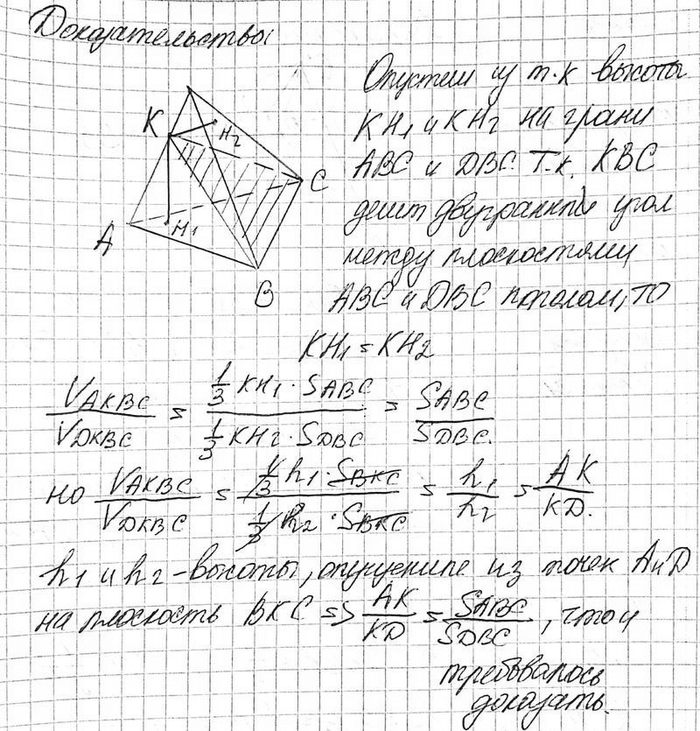 Доказательство:
Опустим из т.К высоты
KH1 и KH2 на грани
ABC и DBC. Т.к. KBC
делит двугранный угол
между плоскостями
ABC и DBC пополам, то
K
H2
C
A
H1
B
KH1 = KH2
VAKBC / VDKBC = 1/3 KH1 · SABC / 1/3 KH2 · SDBC = SABC / SDBC.
но VAKBC / VDKBC = 1/3 h1 · SBKC / 1/3 h2 · SBKC = h1 / h2 = AK / KD.
h1 и h2 - высоты, опущенные из точек A и D
на плоскость BKC => AK / KD = SABC / SDBC, что и
требовалось
доказать.